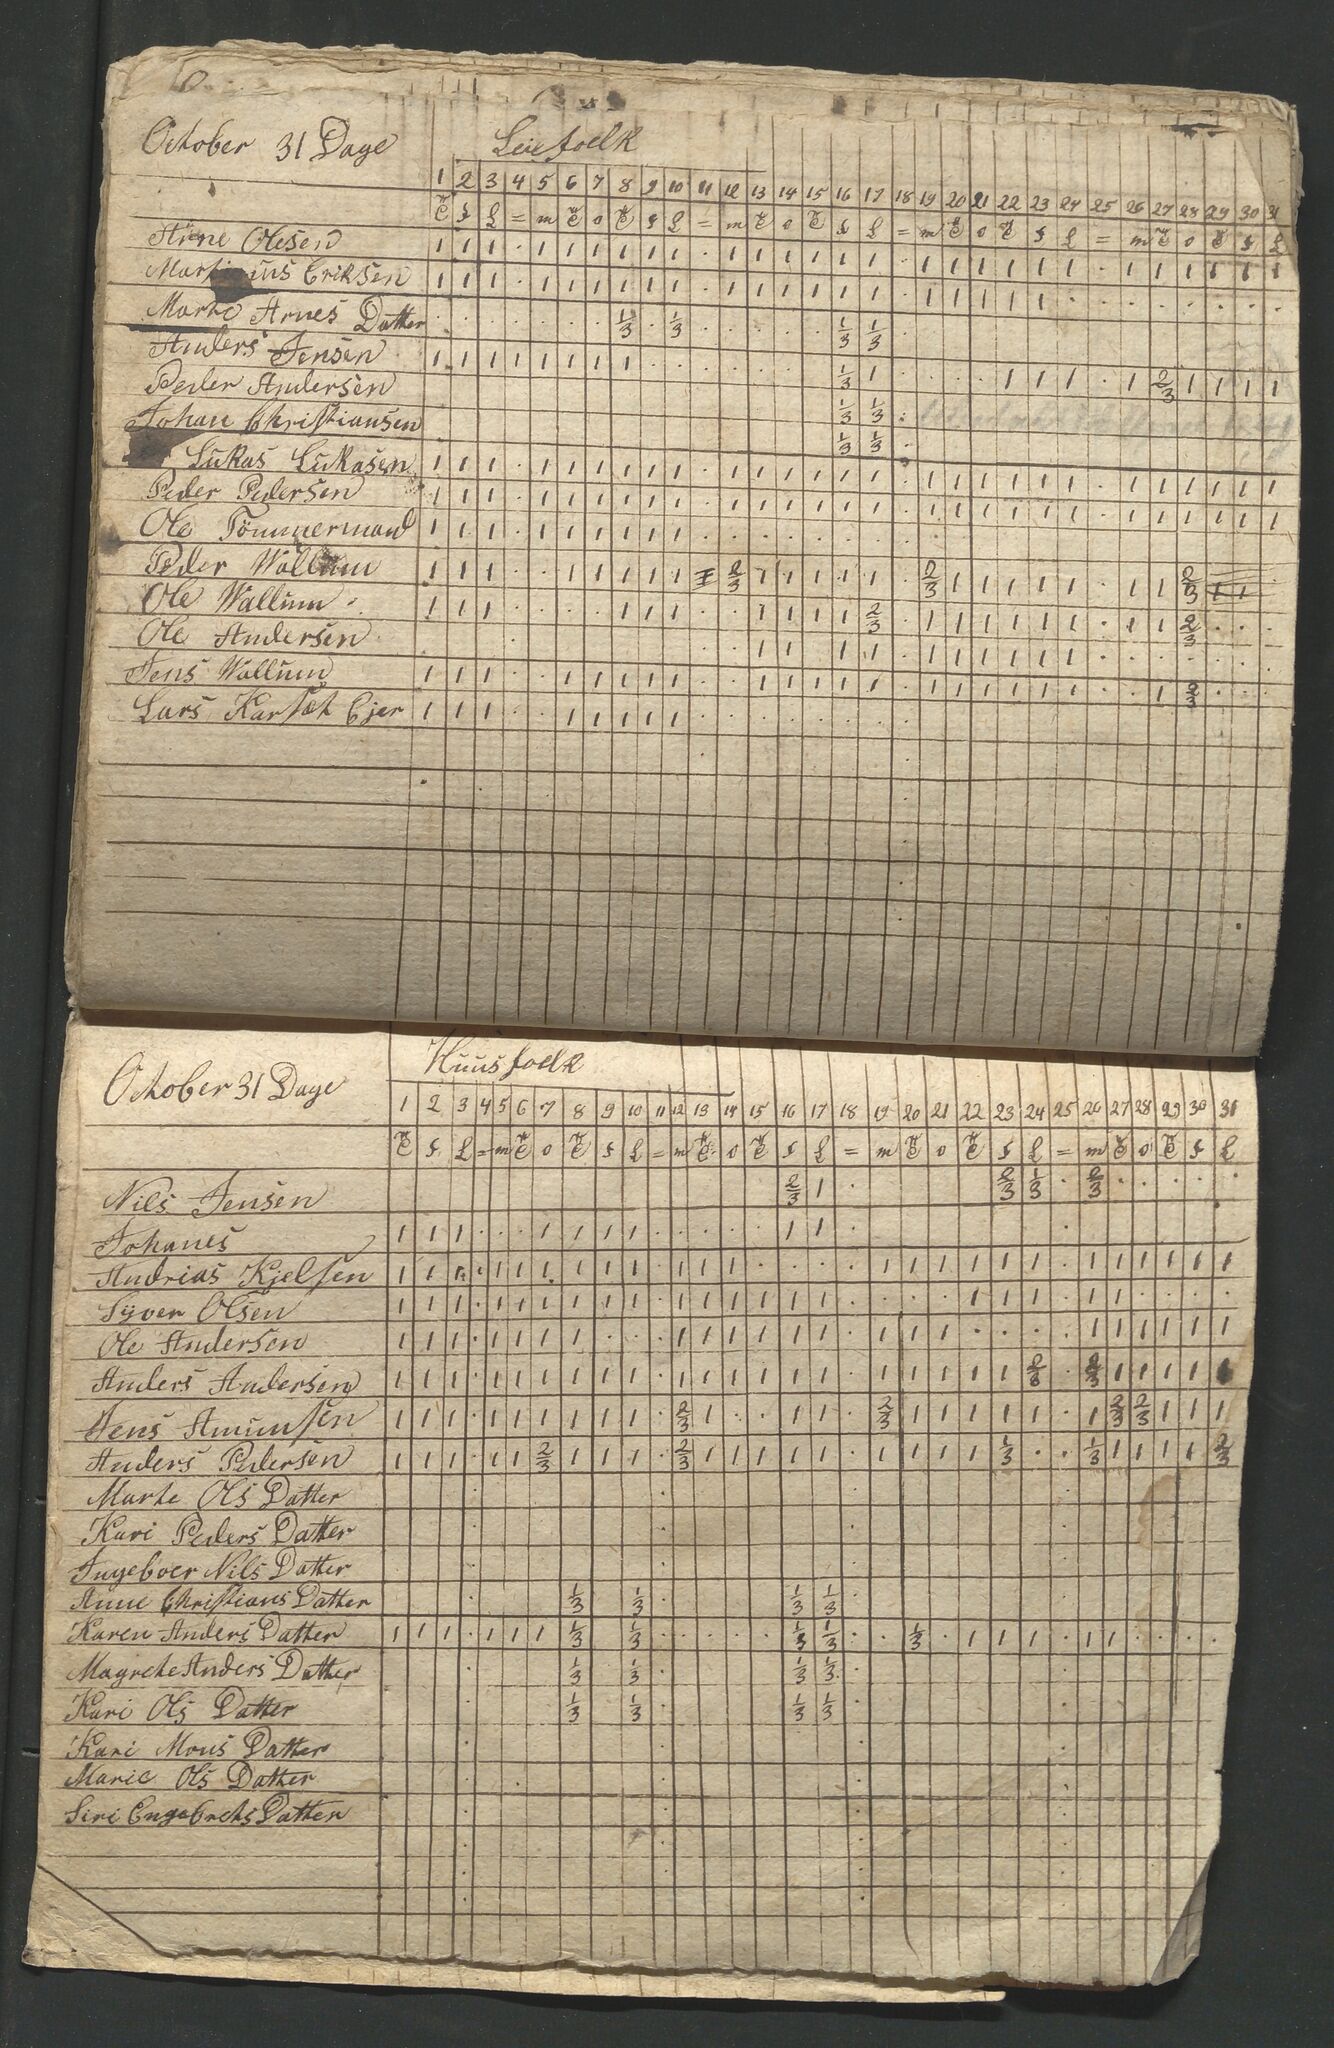 October 31 Dage Leiefolk
1 2 3 4 5 6 7 8 9 10 11 12 13 14 15 16 17 18 19 20 21 22 23 24 25 26 27 28 29 30 31
Arne Olesen 1 1 1 . 1 1 1 1 1 1 . 1 1 1 1 1 1 . 1 1 1 1 1 1 . 1 1 1 1 1 1
Eriksen 1 1 1 . 1 1 1 1 1 1 . 1 1 1 1 1 1 . 1 1 1 1 1 . . . . . . . .
Marte Arnes Datter 1/3 . 1/3 1/3 1/3
Anders Jensen 1 1 1 1 1 1 1 1 1/3 1 1 1 1 . 1 2/3 1 1 1 1
Peder Andersen 1/3 1/3
Johan Christiansen 1/3 1/3
Lukas Lukasen 1 1 1 . 1 1 1 1 1 1 . 1 1 1 1 1 1 . 1 1 1 1 1 1 . 1 1 1 1 1 1
Peder Pedersen 1 1 1 . 1 1 1 1 1 1 . 1 1 1 1 1 1 . 1 1 1 1 1 1 . 1 1 1 1 1 1
Ole Tömmermand 1 1 1 . 1 1 1 1 1 1
Peder Wallum 1 1 1 . . 1 1 1 1 1 2/3 1 1 1 1 1 . 2/3 1 1 1 1 1 . 1 1 2/3
Ole Wallum 1 1 1 . . . . 1 1 1 . . 1 1 1 1 2/3 . 1 1 1 1 1 1 . 1 1 2/3 . . .
Ole Andersen 1 1 . 1 1 . 1 1 1 1 1 1
Jens Wallum 1 1 1 . . 1 1 1 1 1 . . 1 1 1 1 1 . 1 1 1 1 1 1 . . 1 2/3 . . .
Lars Ejer 1 1 1 . . 1 1 1 1 1
October 31 Dage Huusfolk
1 2 3 4 5 6 7 8 9 10 11 12 13 14 15 16 17 18 19 20 21 22 23 24 25 26 27 28 29 30 31
Nils Jensen 2/3 1 2/3 1/3 . 2/3 . . . . .
Johanes 1 1 1 . . . 1 1 1 1 . . . . . 1 1 .
Andrias Kjelsen 1 1 1 . 1 1 1 1 1 1 . 1 1 1 . . . . 1 1 1 1 1 1 . 1 1 1 1 1 1
Syver Olsen 1 1 1 . 1 1 1 1 1 1 . 1 1 1 1 1 1 . . . . 1 1 1 . 1 1 . . . .
Ole Andersen 1 1 1 . 1 1 1 1 . . . 1 1 1 1 1 1 . 1 1 1 . . . . 1 1 1 1 1 1
Anders Andersen 1 1 1 . 1 1 1 1 1 1 . 1 1 1 1 1 1 . 1 1 1 1 1 . 2/3 1 1 1 1 1
Jens Amunsen 1 1 1 . 1 1 1 1 1 1 . 2/3 1 . . 1 1 . 2/3 1 1 1 1 1 . 1 2/3 2/3 1 1 1
Anders Pedersen 1 1 1 . 1 1 2/3 1 1 1 . 2/3 1 1 1 1 1 . 1 1 1 1 1/3 . . 1/3 1 1 1 1 2/3
Marte Ols Datter
Kari Peders Datter
Ingeboer Nils Datter
Anne Christians Datter 1/3 1/3 1/3 1/3
Karen Anders Datter 1 1 1 . 1 1 1 1/3 . 1/3 . . . . . 1/3 1/3 . . 1/3 . 1 1 1 . 1 1 . . . .
Magrete Anders Datter 1/3 1/3 1/3 1/3
Kari Ols Datter 1/3 1/3 1/3 1/3
Kari Mons Datter
Marie Ols Datter
Siri Engebrets Datter